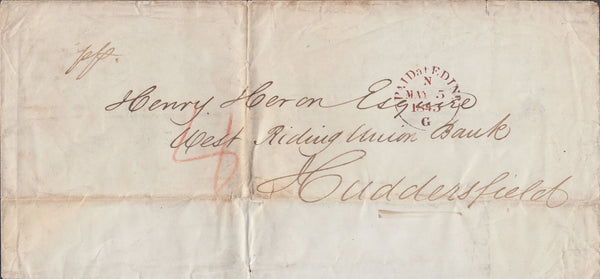 ppp.
PAID at EDINR
N
MAY 5
1845
G
Henry Heron Esquire
West Riding Union Bank
4
Huddersfield